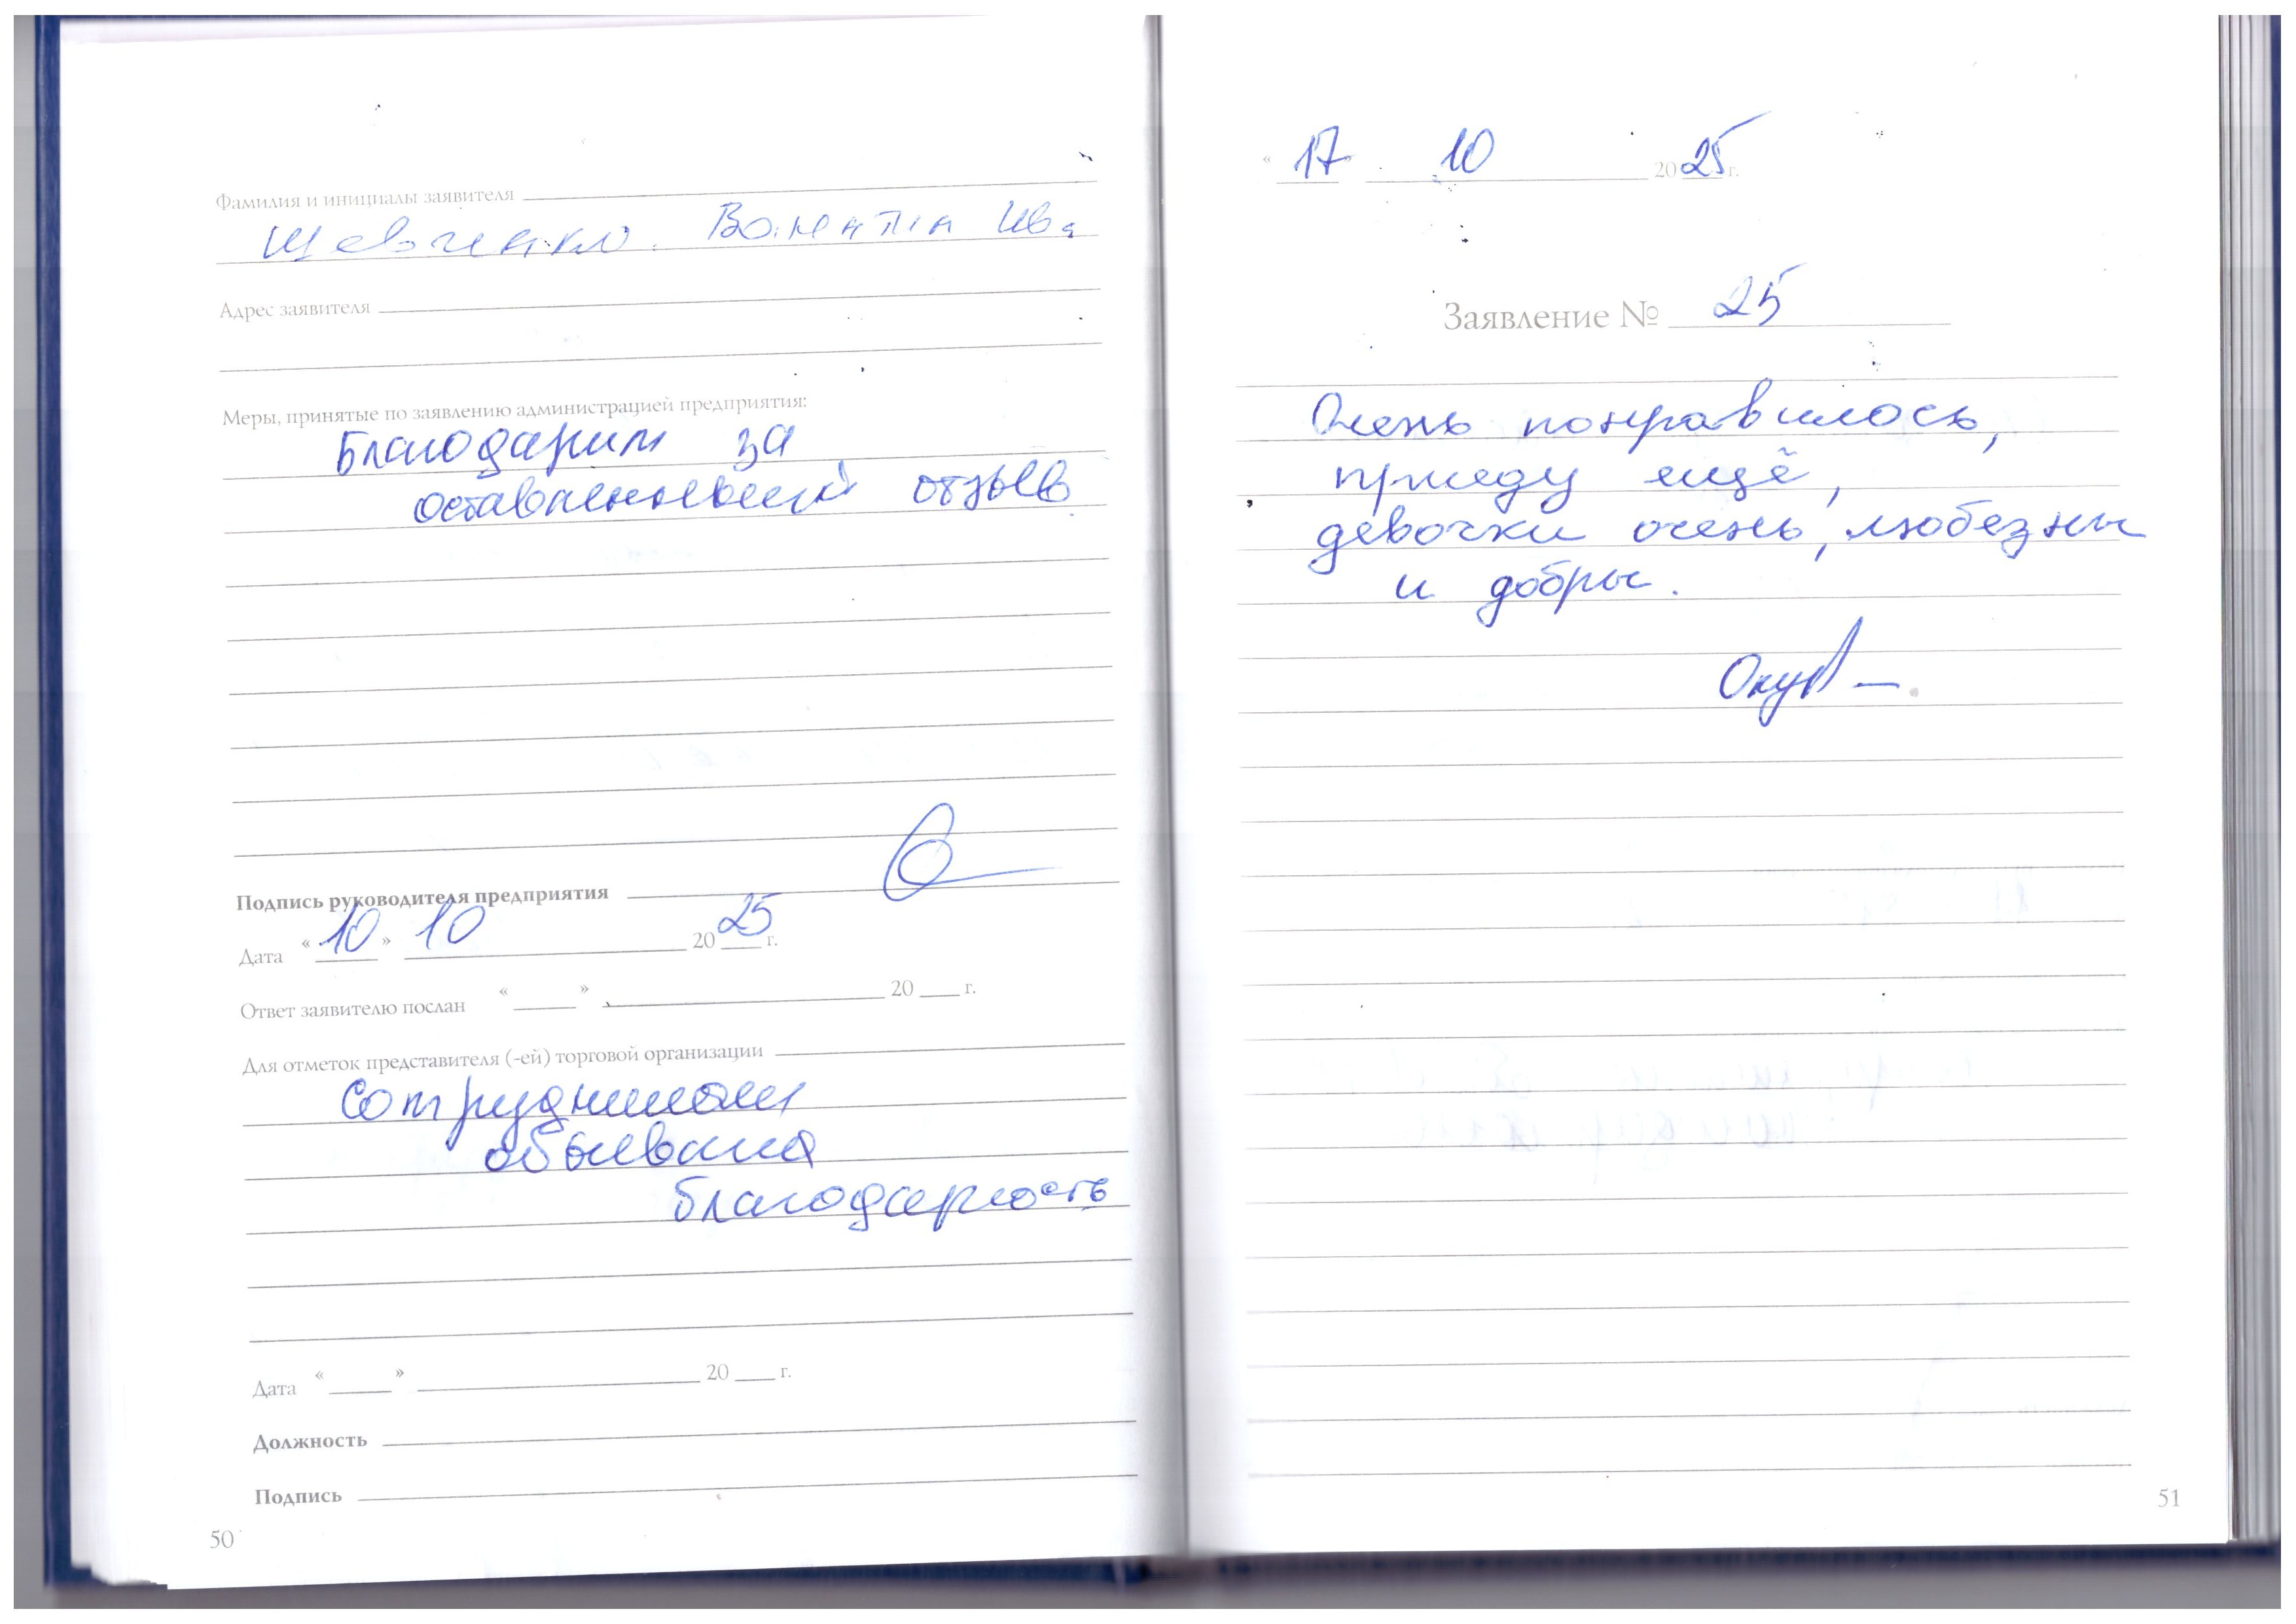 Фамилия и инициалы заявителя
Шевченко Ива
Адрес заявителя
Меры, принятые по заявлению администрацией предприятия:
Благодарим за
оставленный отзыв
Подпись руководителя предприятия
Дата «10» 10 2025 г.
Ответ заявителю послан « » 20 г.
Для отметок представителя (-ей) торговой организации
Сотрудникам
объявлена
благодарность
Дата « » 20 г.
Должность
Подпись
50
«17» 10 2025 г.
Заявление № 25
Очень понравилось,
приеду ещё,
девочки очень, любезны
и добры.
51